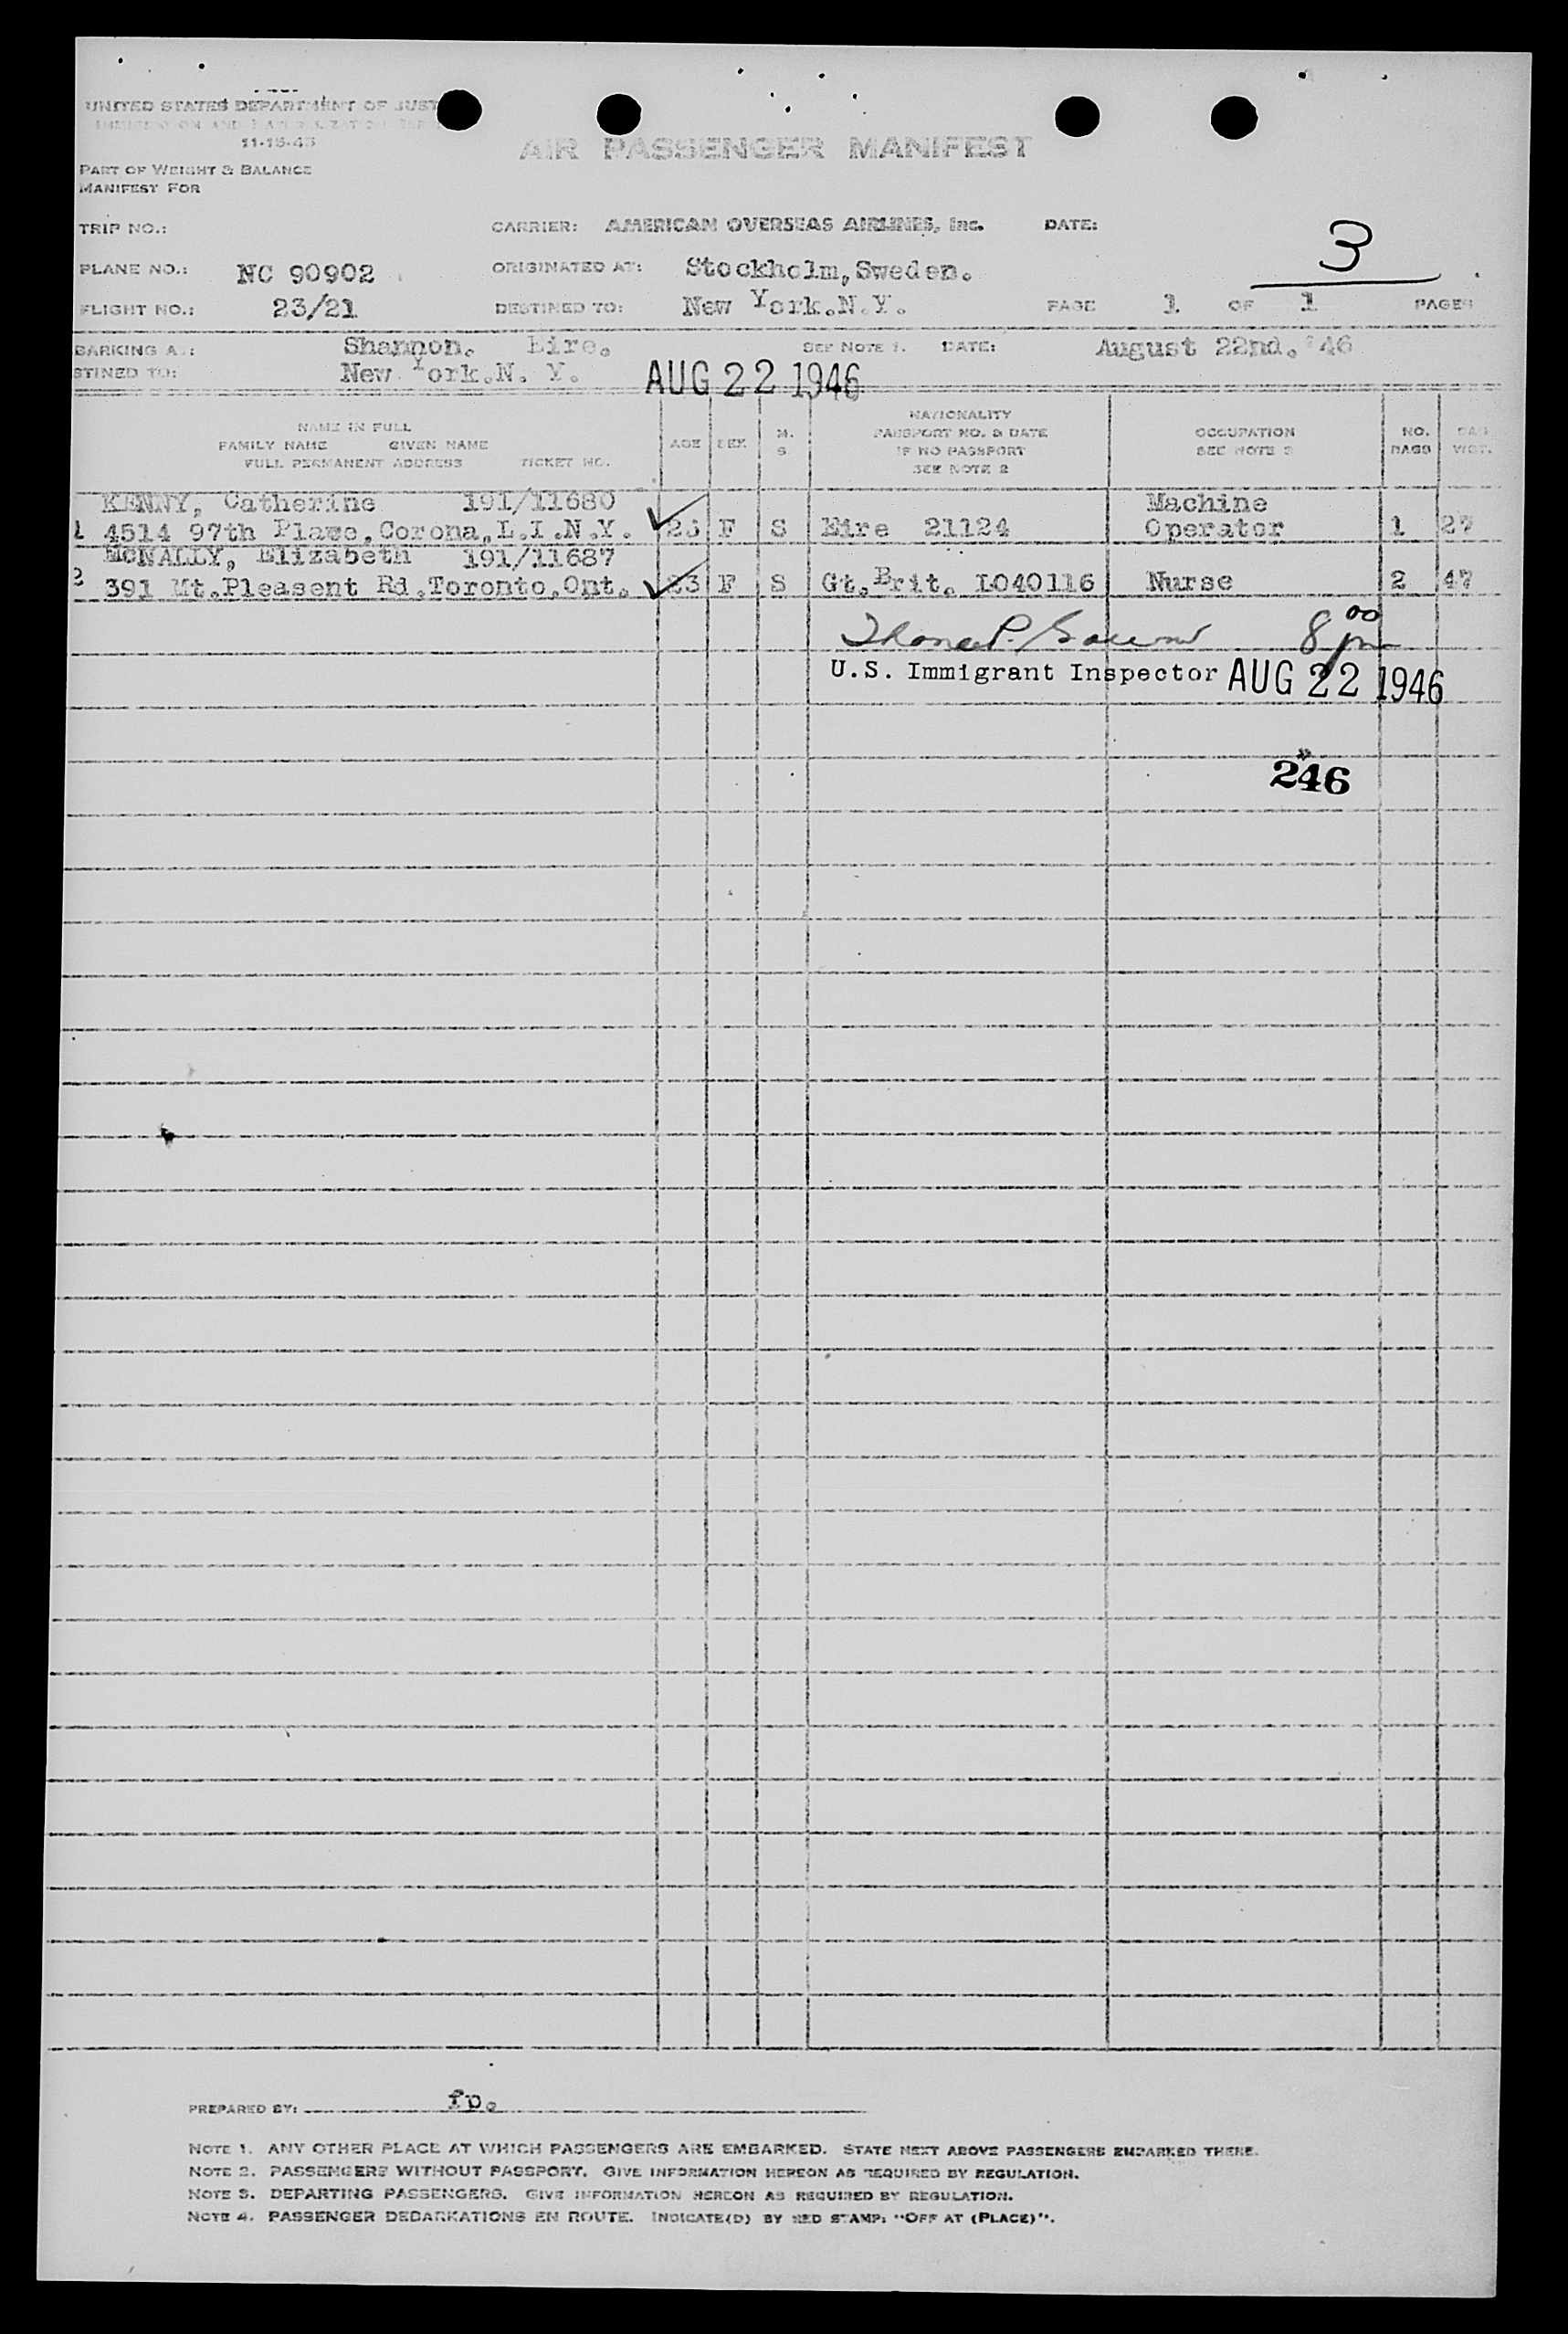 UNITED STATES DEPARTMENT OF JUST
11-15-45
AIR PASSENGER MANIFEST
PART OF WEIGHT & BALANCE
MANIFEST FOR
TRIP NO.: CARRIER: AMERICAN OVERSEAS AIRLINES, Inc. DATE:
3
PLANE NO.: NC 90902 ORIGINATED AT: Stockholm, Sweden.
FLIGHT NO.: 23/21 DESTINED TO: New York.N.Y. PAGE 1 OF 1 PAGES
BARKING A.: Shannon. Eire. SEE NOTE 1. DATE: August 22nd.'46
STINED TO: New York.N. Y. AUG 22 1946
NAME IN FULL
FAMILY NAME GIVEN NAME
FULL PERMANENT ADDRESS TICKET NO.
AGE SEX M. S
NATIONALITY
PASSPORT NO. & DATE
IF NO PASSPORT
SEE NOTE 2
OCCUPATION
SEE NOTE 3
NO. BAGS
BAG WGT.
KENNY, Catherine 191/11680 Machine
1 4514 97th Place, Corona, L.I.N.Y. F S Eire 21124 Operator 1 27
McNALLY, Elizabeth 191/11687
2 391 Mt.Pleasent Rd.Toronto.Ont. 23 F S Gt.Brit. LO40116 Nurse 2 47
8 00 pm
U.S. Immigrant Inspector AUG 22 1946
246
PREPARED BY: fp.
NOTE 1. ANY OTHER PLACE AT WHICH PASSENGERS ARE EMBARKED. STATE NEXT ABOVE PASSENGERS EMBARKED THERE.
NOTE 2. PASSENGERS WITHOUT PASSPORT. GIVE INFORMATION HEREON AS REQUIRED BY REGULATION.
NOTE 3. DEPARTING PASSENGERS. GIVE INFORMATION HEREON AS REQUIRED BY REGULATION.
NOTE 4. PASSENGER DEBARKATIONS EN ROUTE. INDICATE(D) BY RED STAMP: "OFF AT (PLACE)".